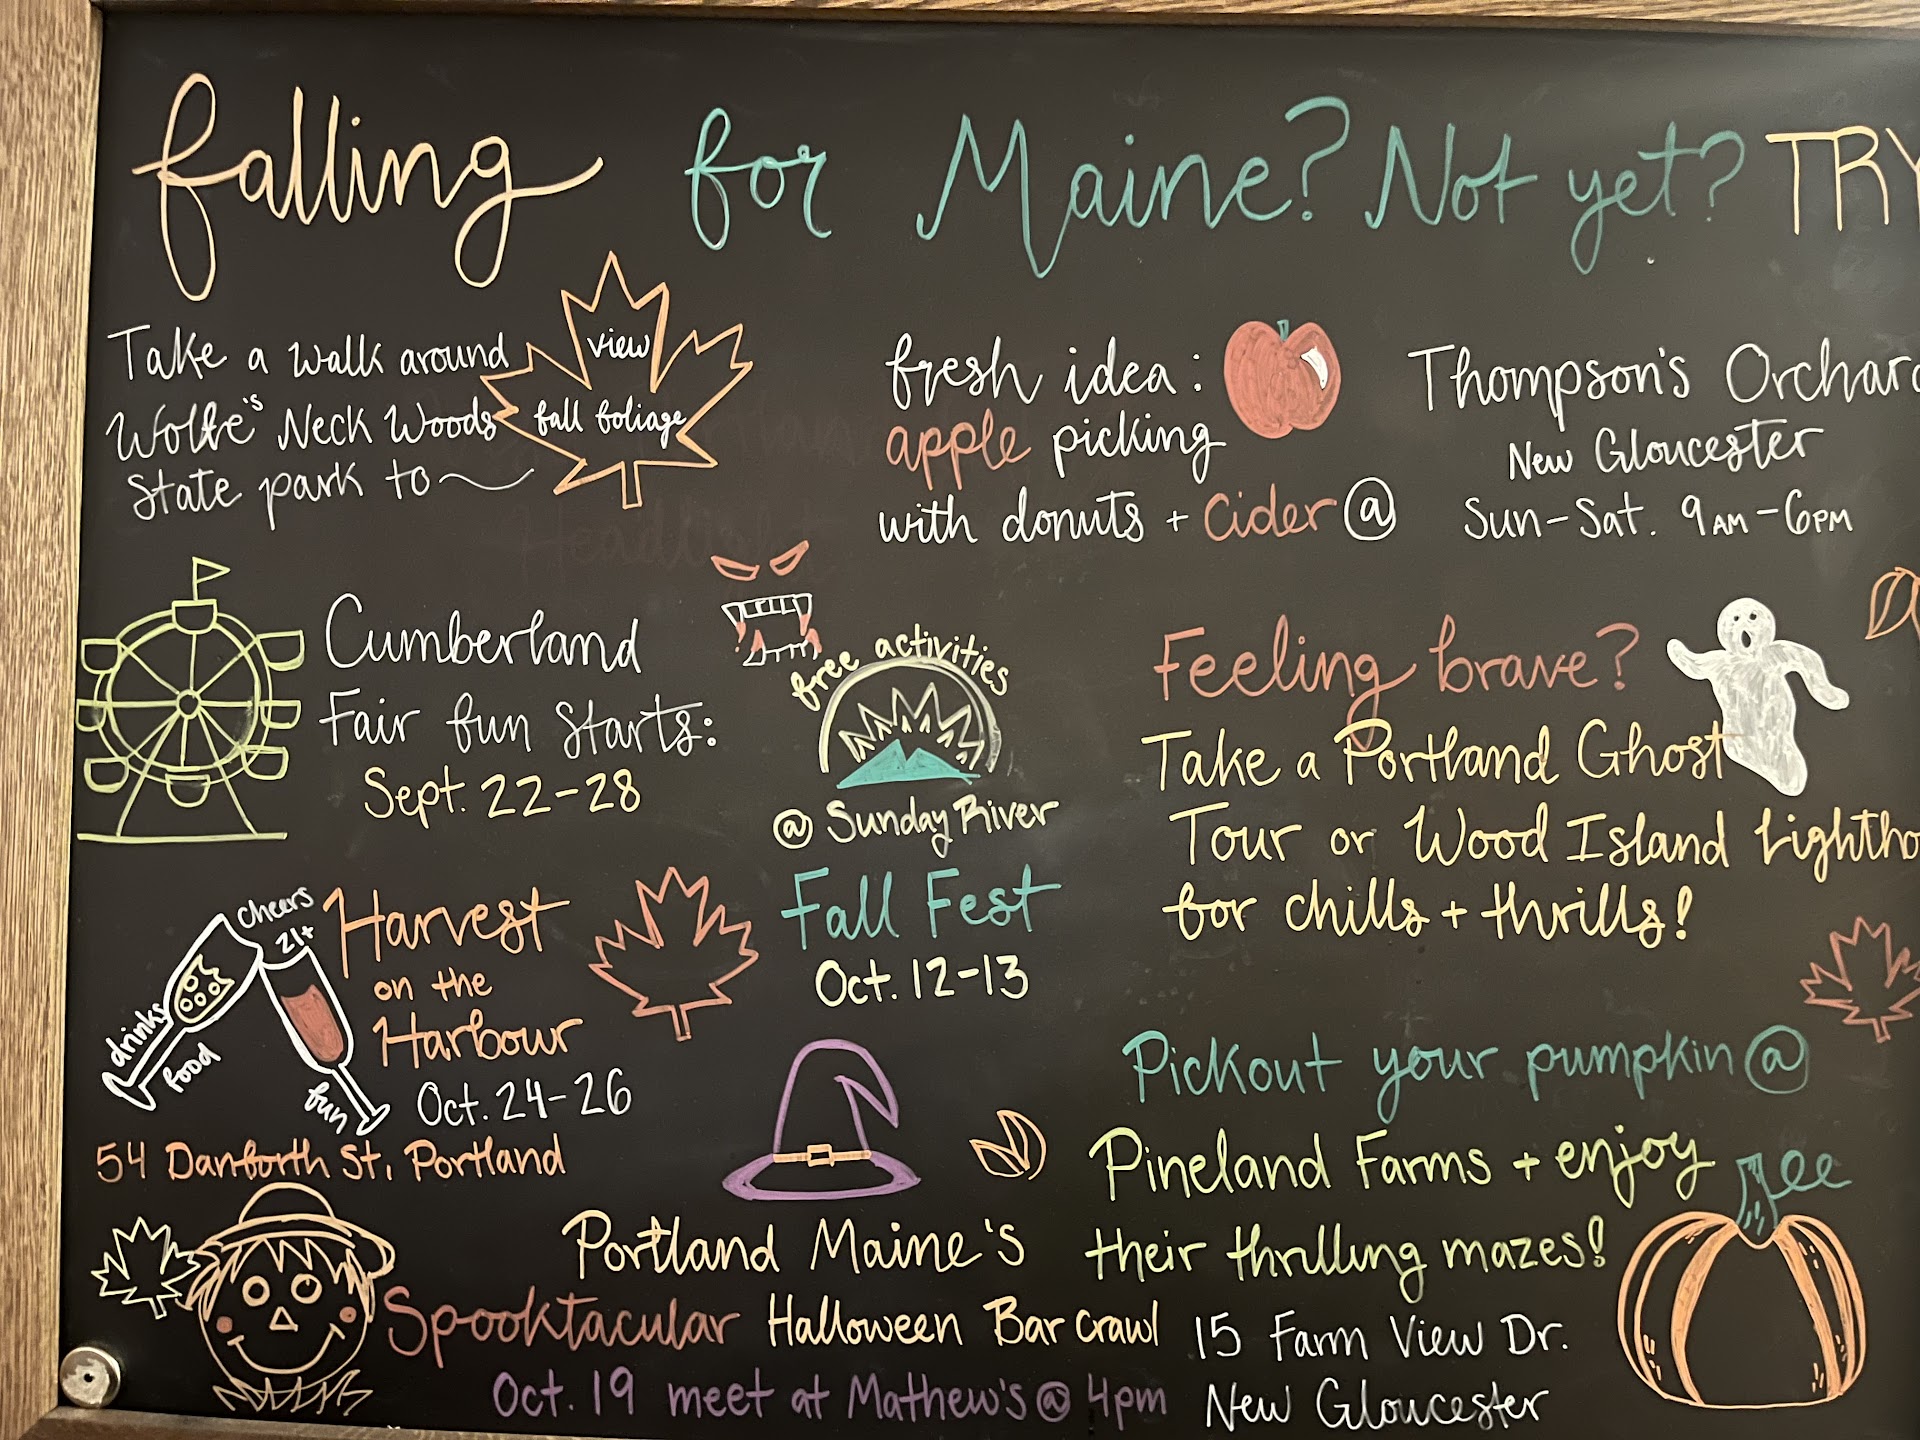 falling for Maine? Not yet? TRY
Take a walk around
Wolfe's Neck Woods
State park to
view
fall foliage
fresh idea:
apple picking
with donuts + Cider @
Thompson's Orchard
New Gloucester
Sun-Sat. 9AM-6PM
Cumberland
Fair fun starts:
Sept. 22-28
free activities
@ Sunday River
Fall Fest
Oct. 12-13
Feeling brave?
Take a Portland Ghost
Tour or Wood Island Lightho
for chills + thrills!
cheers
21+
drinks
food
fun
Harvest
on the
Harbour
Oct. 24-26
54 Danforth St, Portland
Pickout your pumpkin @
Pineland Farms + enjoy
their thrilling mazes!
15 Farm View Dr.
New Gloucester
Portland Maine's
Spooktacular Halloween Bar crawl
Oct. 19 meet at Mathew's @ 4pm